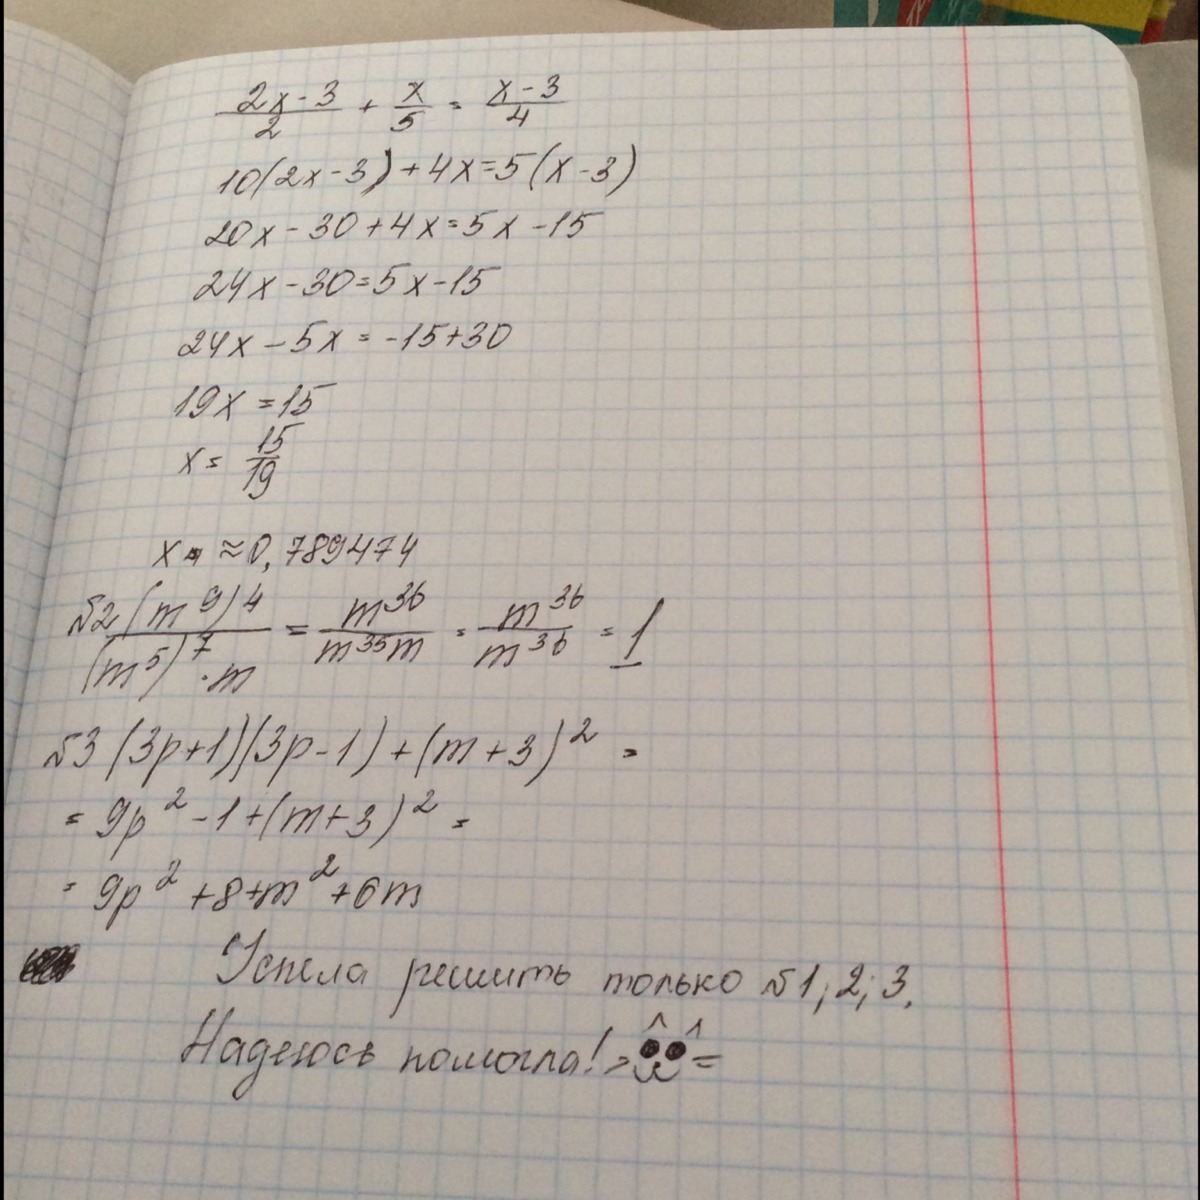 (2x-3)/2 + x/5 = (x-3)/4
10(2x-3)+4x=5(x-3)
20x-30+4x=5x-15
24x-30=5x-15
24x-5x=-15+30
19x=15
x=15/19
x≈0,789474
№2 (m⁹)⁴/((m⁵)⁷·m) = m³⁶/(m³⁵m) = m³⁶/m³⁶ = 1
№3 (3p+1)(3p-1)+(m+3)² =
= 9p²-1+(m+3)² =
= 9p²+8+m²+6m
Успела решить только №1; 2; 3.
Надеюсь помогла!